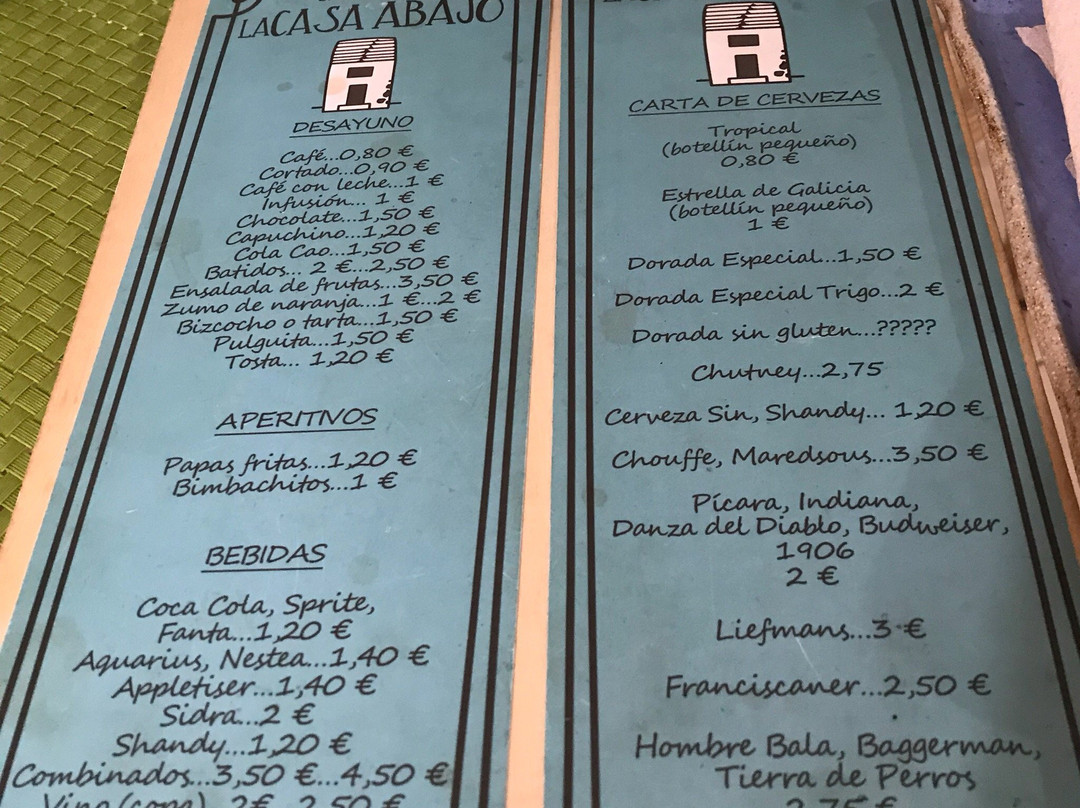 LACASA ABAJO
DESAYUNO
Café...0,80 €
Cortado...0,90 €
Café con leche...1 €
Infusión... 1 €
Chocolate...1,50 €
Capuchino...1,20 €
Cola Cao...1,50 €
Batidos... 2 €...2,50 €
Ensalada de frutas...3,50 €
Zumo de naranja...1 €...2 €
Bizcocho o tarta...1,50 €
Pulguita...1,50 €
Tosta... 1,20 €
APERITIVOS
Papas fritas...1,20 €
Bimbachitos...1 €
BEBIDAS
Coca Cola, Sprite,
Fanta...1,20 €
Aquarius, Nestea...1,40 €
Appletiser...1,40 €
Sidra...2 €
Shandy...1,20 €
Combinados...3,50 €...4,50 €
Vino (copa) 2€ 2,50 €
CARTA DE CERVEZAS
Tropical
(botellín pequeño)
0,80 €
Estrella de Galicia
(botellín pequeño)
1 €
Dorada Especial...1,50 €
Dorada Especial Trigo...2 €
Dorada sin gluten...?????
Chutney...2,75
Cerveza Sin, Shandy... 1,20 €
Chouffe, Maredsous...3,50 €
Pícara, Indiana,
Danza del Diablo, Budweiser,
1906
2 €
Liefmans...3 €
Franciscaner...2,50 €
Hombre Bala, Baggerman,
Tierra de Perros
2,75 €